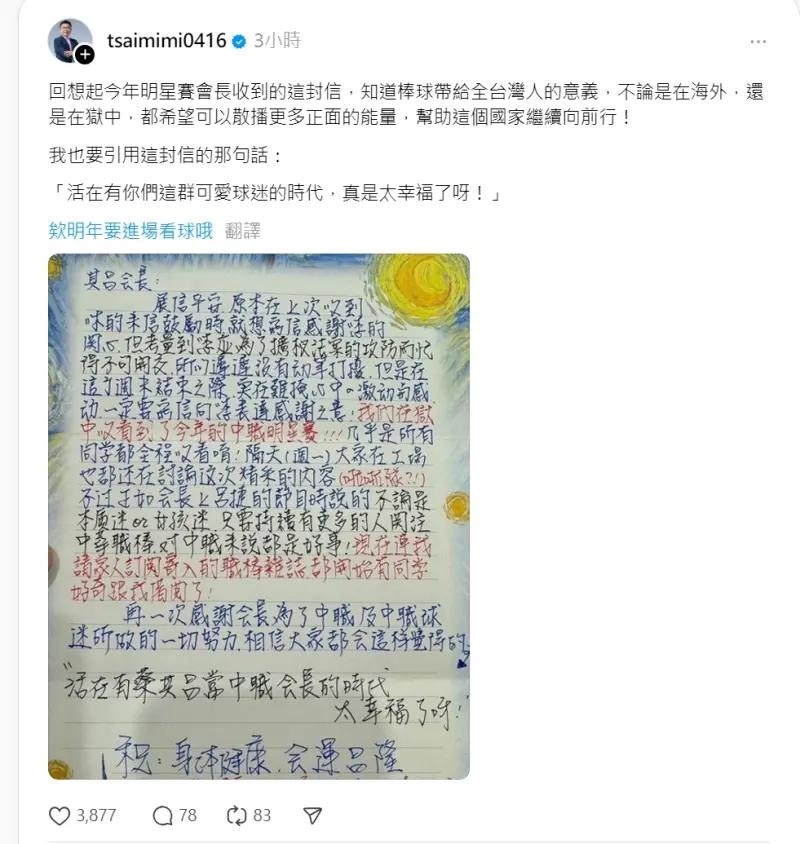 tsaimimi0416 3小時
回想起今年明星賽會長收到的這封信，知道棒球帶給全台灣人的意義，不論是在海外，還
是在獄中，都希望可以散播更多正面的能量，幫助這個國家繼續向前行！
我也要引用這封信的那句話：
「活在有你們這群可愛球迷的時代，真是太幸福了呀！」
欸明年要進場看球哦 翻譯
其昌会長：
展信平安.原本在上次收到
的来信鼓勵時,就想寫信感謝您的
関心.但考量到您並為了擴权法案的攻防而忙
得不可開交.所以遲遲沒有动筆打擾.但是在
這个週末結束之際.実在難掩心中の激动与感
动.一定要寫信向您表達感謝之意！我們在獄
中収看到了今年的中職明星賽!!!几乎是所有
同学都全程収看唷！隔天(週一)大家在工場
也都还在討論这次精釆的内容(啦啦隊?!)
不过正如会長上呂捷的節目時說的.不論是
本质迷or女孩迷.只要持續有更多的人関注
中華職棒.对中職来說都是好事！現在連我
請家人訂閱寄入的職棒雜誌.都開始有同学
好奇跟我借閱了！
再一次感謝会長為了中職及中職球
迷所做的一切努力.相信大家都会這样覺得的
"活在有蔡其昌當中職会長的時代
太幸福了呀！"
祝：身体健康.会運昌隆
3,877 78 83